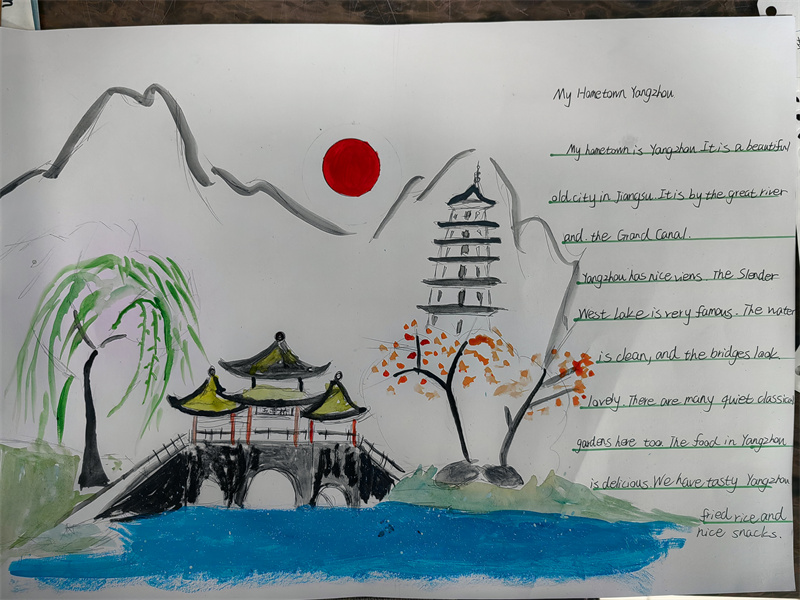 My Hometown Yangzhou
My hometown is Yangzhou. It is a beautiful
old city in Jiangsu. It is by the great river
and the Grand Canal.
Yangzhou has nice viens. The Slender
West Lake is very famous. The water
is clean, and the bridges look
lovely. There are many quiet classical
gardens here too. The food in Yangzhou
is delicious. We have tasty Yangzhou
fried rice and
nice snacks.